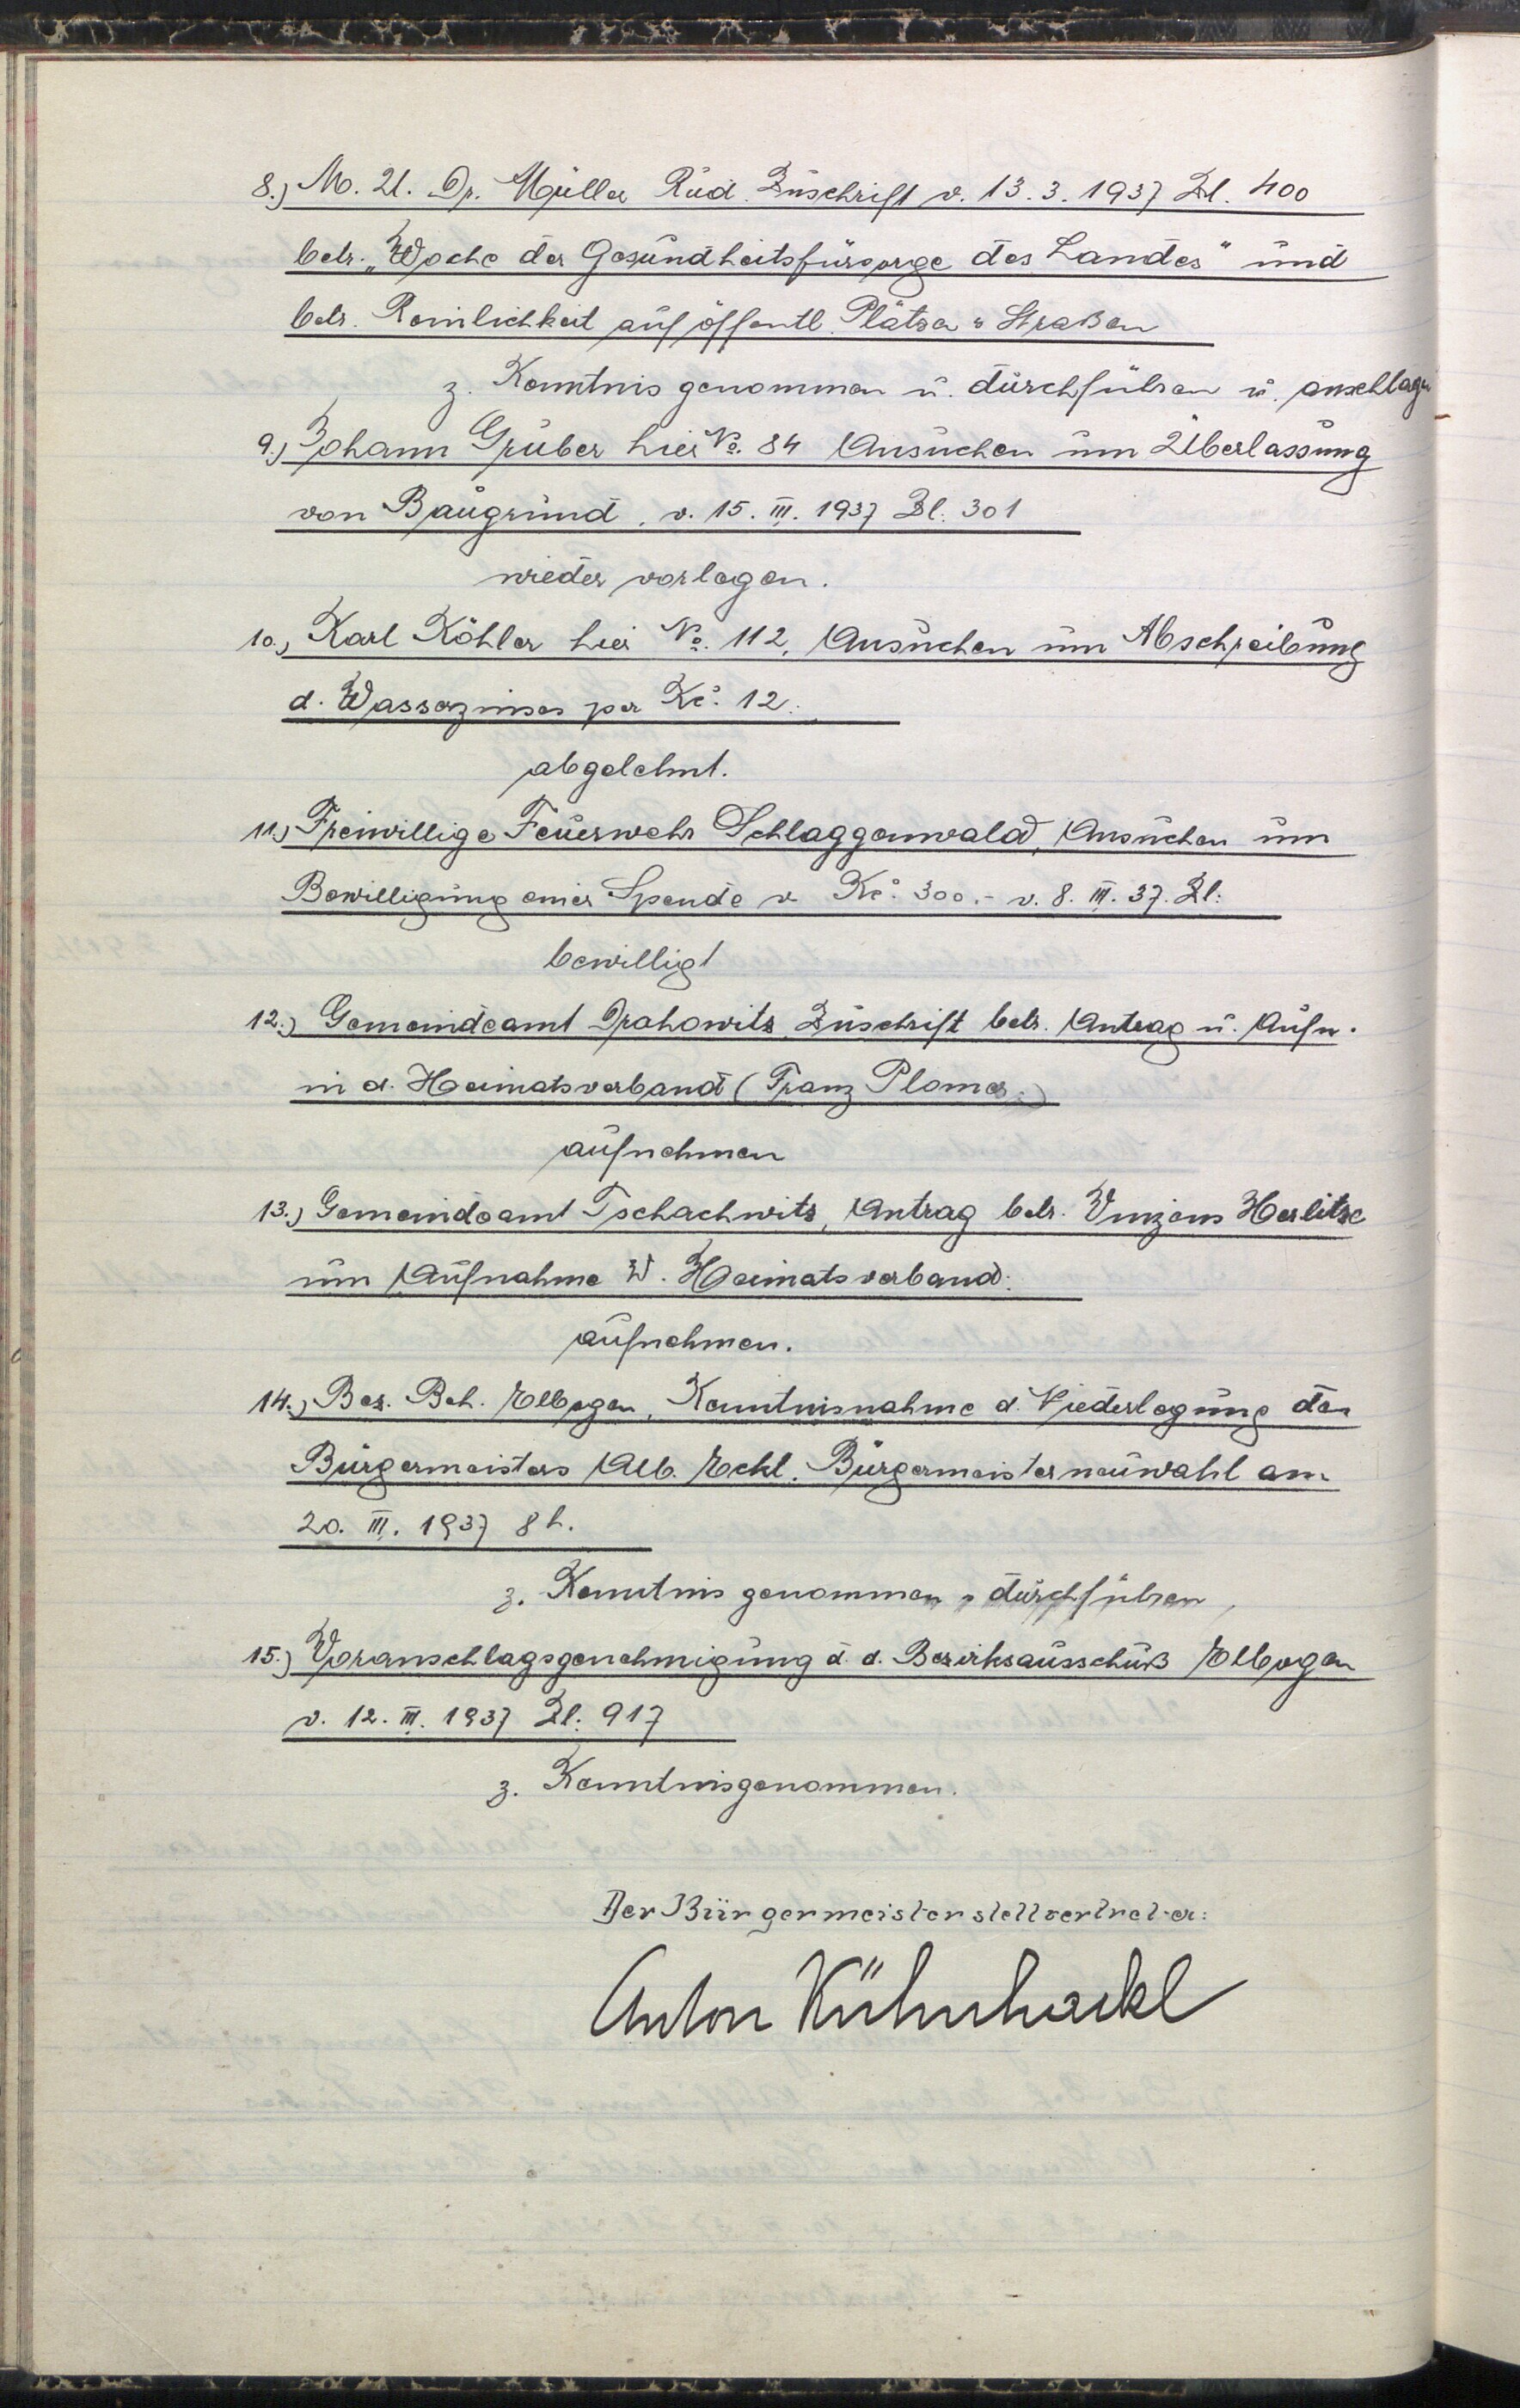 8.) M. U. Dr. Müller Rud. Zuschrift v. 13.3.1937 Zl. 400
betr. „Woche der Gesundheitsfürsorge des Landes" und
betr. Reinlichkeit auf öffentl. Plätzen u Straßen
z. Kenntnis genommen u. durchführen u. anschlagen
9.) Johann Gruber hier No. 84 Ansuchen um Überlassung
von Baugrund, v. 15. III. 1937 Zl. 301
wieder vorlegen.
10.) Karl Köhler hier No. 112, Ansuchen um Abschreibung
d. Wasserzinses per Kč. 12.
abgelehnt.
11.) Freiwillige Feuerwehr Schlaggenwald, Ansuchen um
Bewilligung einer Spende v Kč. 300.- v. 8. III. 37. Zl:
bewilligt
12.) Gemeindeamt Drahowitz Zuschrift betr. Antrag u. Aufn.
in d. Heimatsverband (Franz Plomer.)
aufnehmen
13.) Gemeindeamt Tschachwitz, Antrag betr. Vinzenz Herlitze
um Aufnahme i. d. Heimatsverband.
aufnehmen.
14.) Bez. Beh. Elbogen, Kenntnisnahme d. Niederlegung des
Bürgermeisters Alb. Eckl. Bürgermeisterneuwahl am
20. III. 1937 8 h.
z. Kenntnis genommen u durchführen,
15.) Voranschlagsgenehmigung d. d. Bezirksausschuß Elbogen
v. 12. III. 1937 Zl: 917
z. Kenntnisgenommen.
Der Bürgermeisterstellvertreter:
Anton Kühnhackl